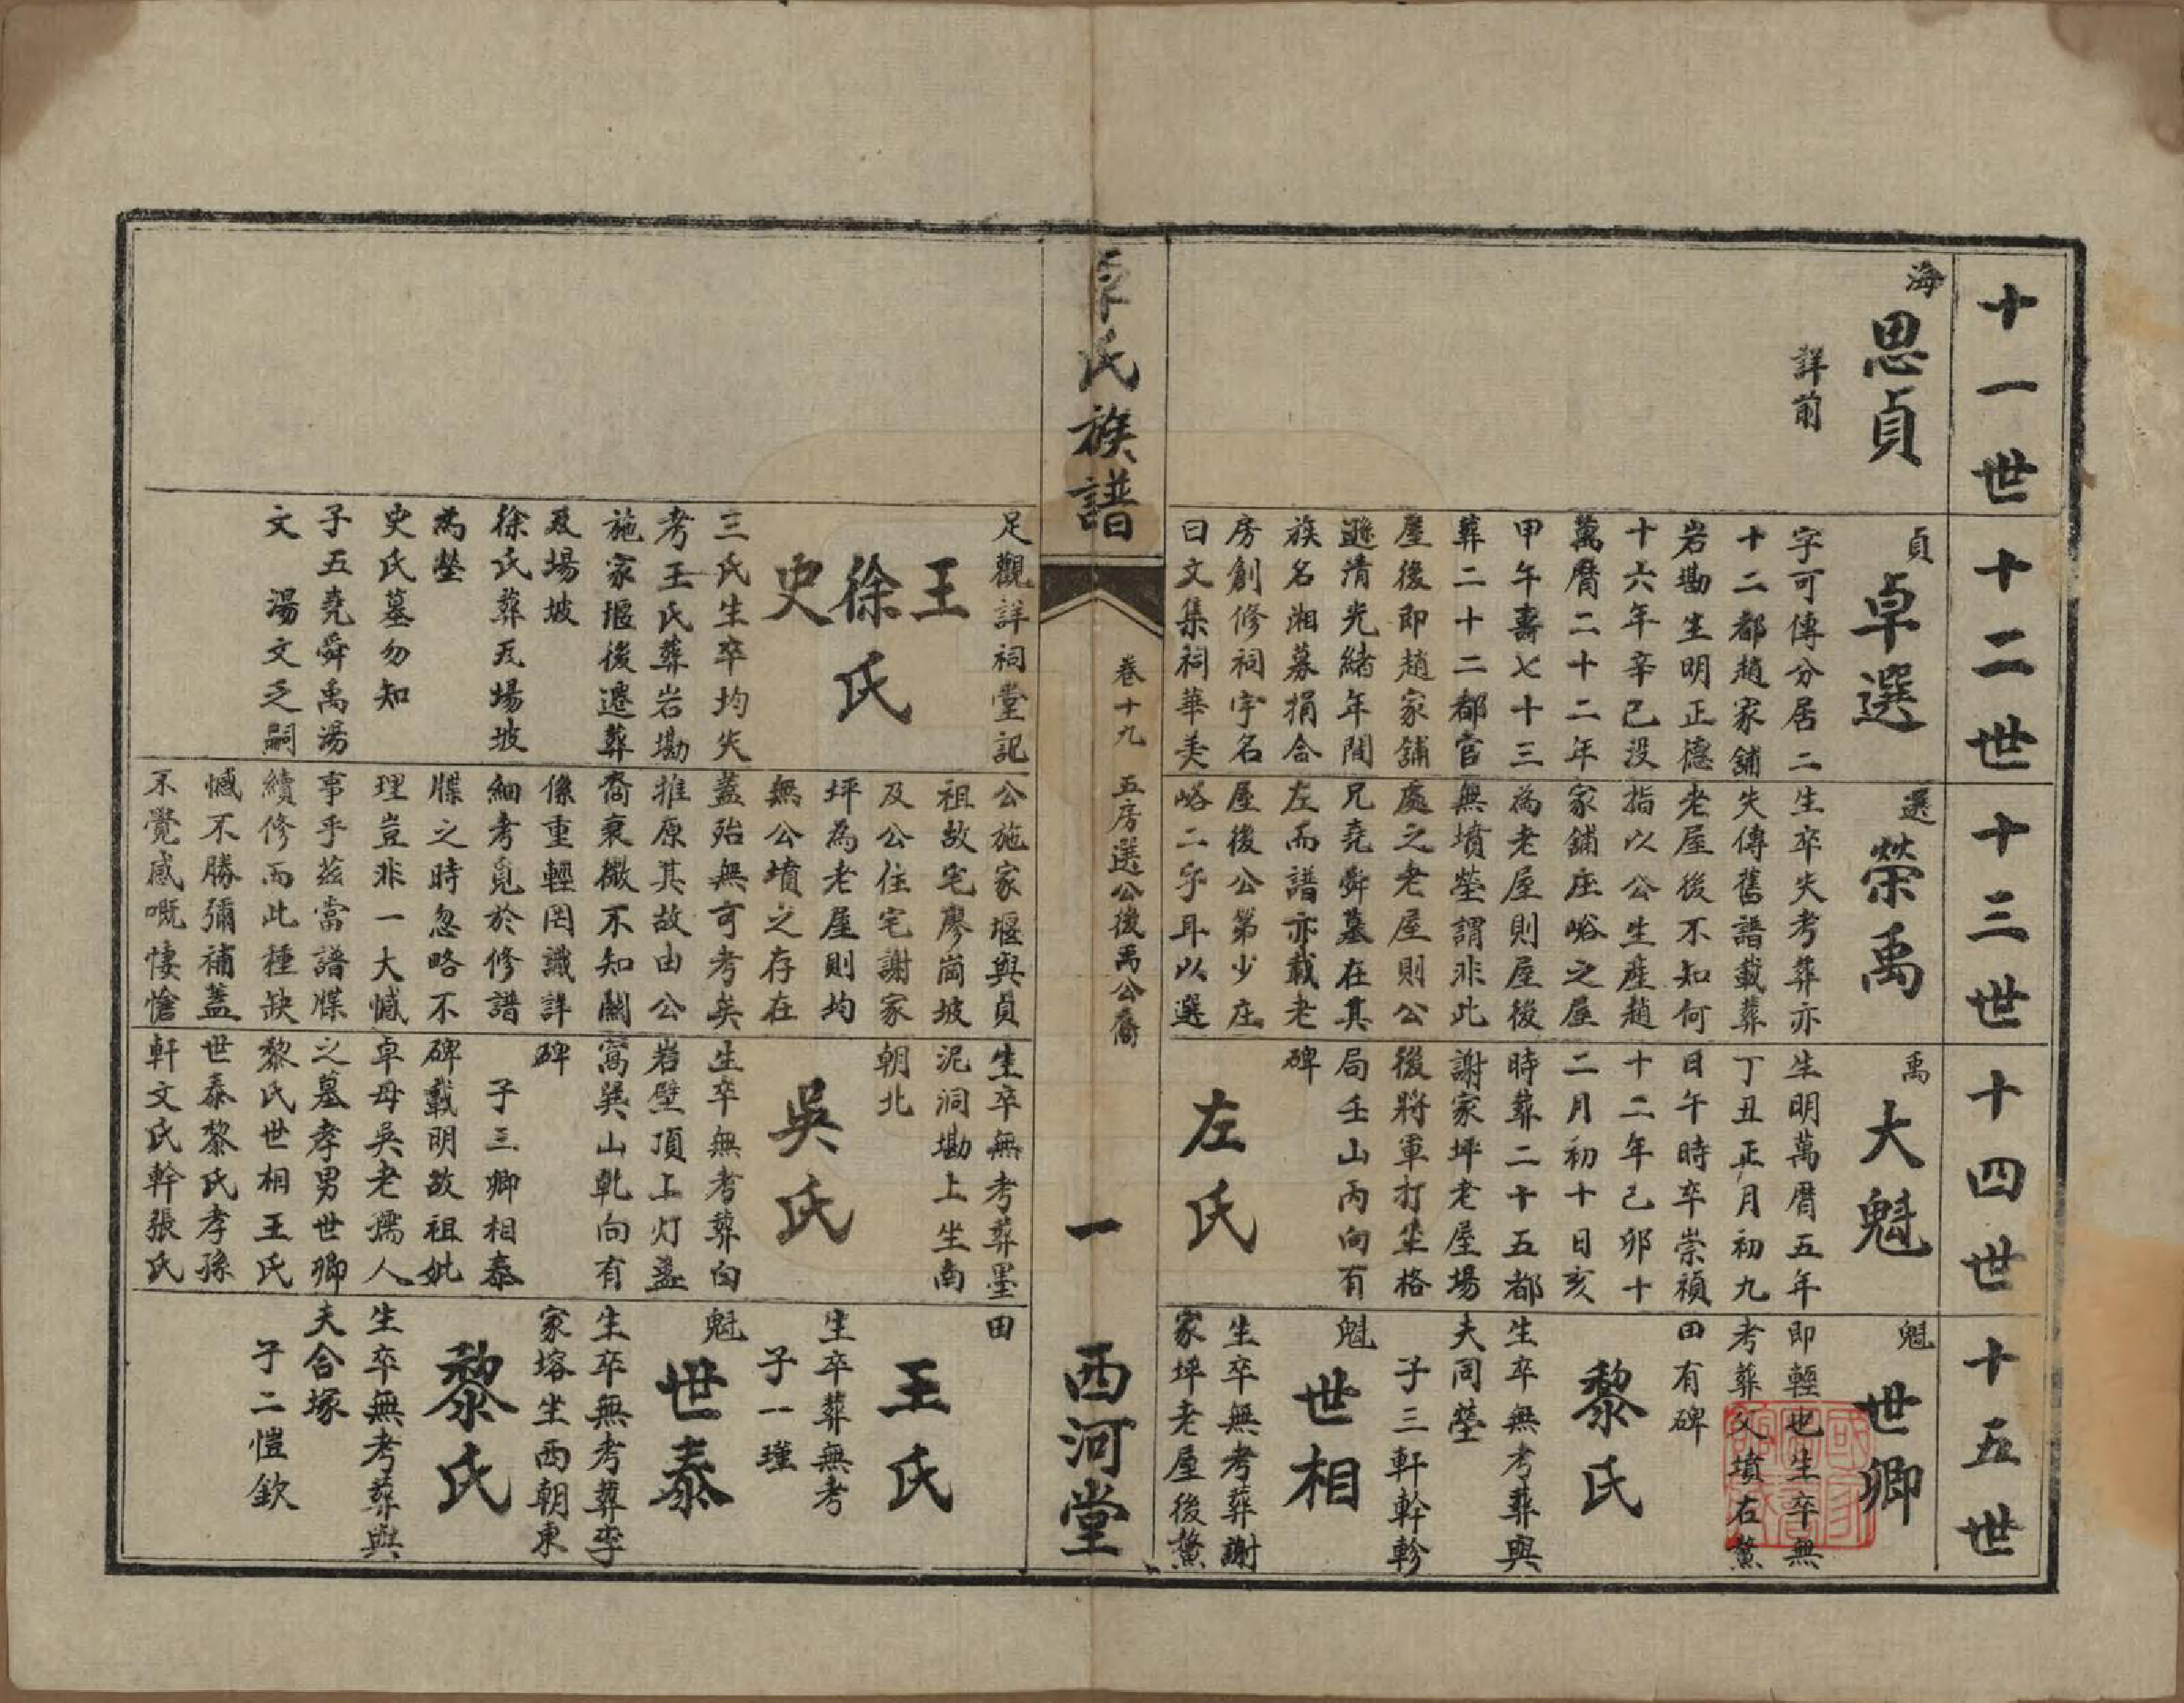 十一世
海
思貞
詳前
十二世
貞
卓選
字可傳分居二
十二都趙家舖
岩墈生明正德
十六年辛巳没
萬曆二十二年
甲午壽七十三
葬二十二都官
屋後即趙家舖
遜清光緒年間
族名湘募捐合
房創修祠宇名
曰文集祠華美
足觀詳祠堂記
王
徐氏
史
三氏生卒均失
考王氏葬岩墈
施家堰後遷葬
及場坡
徐氏葬瓦場坡
為塋
史氏墓勿知
子五堯舜禹湯
文 湯文乏嗣
十三世
選
榮禹
生卒失考葬亦
失傳舊譜載葬
老屋後不知何
指以公生產趙
家舖庄峪之屋
為老屋則屋後
無墳塋謂非此
處之老屋則公
兄堯舜墓在其
左而譜亦載老
屋後公第少庄
峪二字耳以選
公施家堰與貞
祖故宅廖崗坡
及公住宅謝家
坪為老屋則均
無公墳之存在
蓋殆無可考矣
推原其故由公
裔衰微不知關
係重輕罔識詳
細考覓於修譜
牒之時忽略不
理豈非一大憾
事乎茲當譜牒
續修而此種缺
憾不勝彌補蓋
不覺感嘅悽愴
十四世
禹
大魁
生明萬曆五年
丁丑正月初九
日午時卒崇禎
十二年己卯十
二月初十日亥
時葬二十五都
謝家坪老屋場
後將軍打坐格
局壬山丙向有
碑
左氏
生卒無考葬墨
泥洞墈上坐南
朝北
吳氏
生卒無考葬白
岩壁頂上灯盞
窩巽山乾向有
碑
子三卿相泰
碑載明故祖妣
卓母吳老孺人
之墓孝男世卿
黎氏世相王氏
世泰黎氏孝孫
軒文氏幹張氏
十五世
魁
世卿
即輕也生卒無
考葬父墳右鰲
田有碑
黎氏
生卒無考葬與
夫同塋
子三軒幹軫
魁
世相
生卒無考葬謝
家坪老屋後鰲
田
王氏
生卒葬無考
子一瑾
魁
世泰
生卒無考葬李
家塝坐西朝東
黎氏
生卒無考葬與
夫合塚
子二愷欽
氏族譜
卷十九 五房選公後禹公裔
一
西河堂